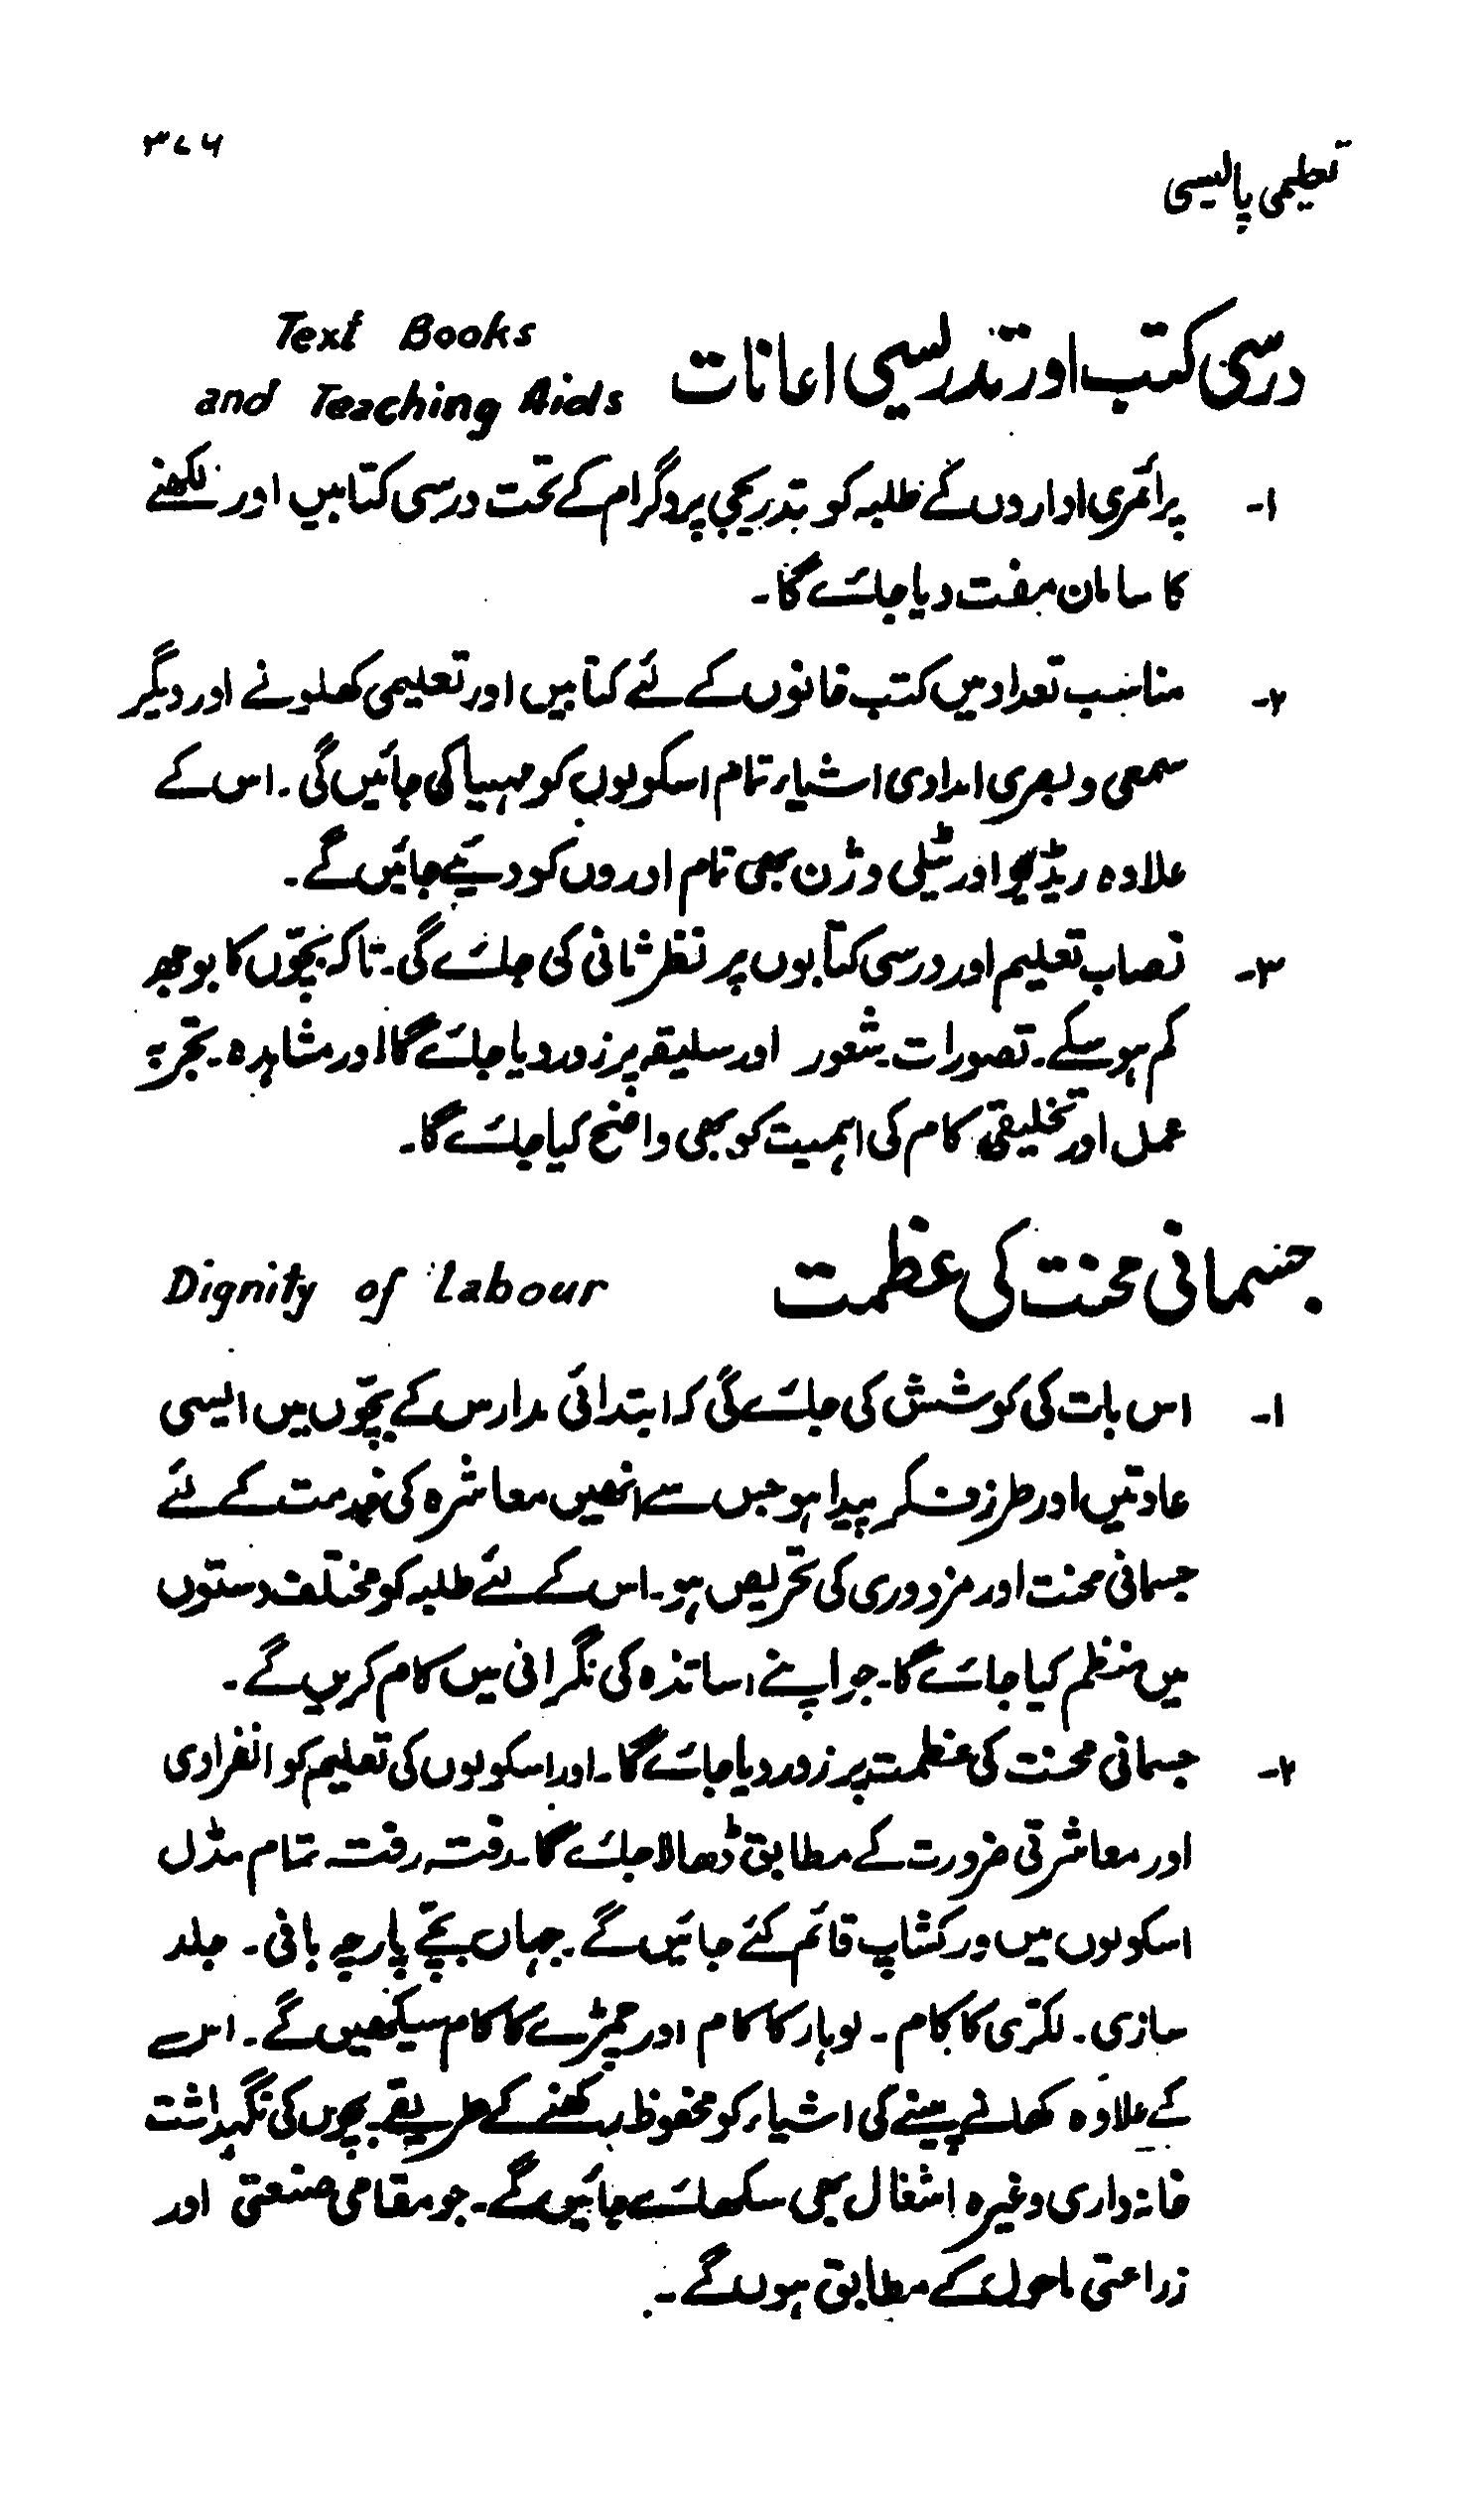 ۳۷۶
تعلیمی پالیسی
درسی کتب اور تدریسی اعانات Text Books
and Teaching Aids
۱۔ پرائمری اداروں کے طلبہ کو بتدریجی پروگرام کے تحت درسی کتابیں اور لکھنے
کا سامان مفت دیا جائے گا۔
۲۔ مناسب تعداد میں کتب خانوں کے لئے کتابیں اور تعلیمی کھلونے اور دیگر
سمعی و بصری امدادی اشیاء تمام اسکولوں کو مہیا کی جائیں گی۔ اس کے
علاوہ ریڈیو اور ٹیلی وژن بھی تمام ادروں کو دیئے جائیں گے۔
۳۔ نصاب تعلیم اور درسی کتابوں پر نظر ثانی کی جائے گی۔ تاکہ بچوں کا بوجھ
کم ہو سکے۔ تصورات۔ شعور اور سلیقہ پر زور دیا جائے گا اور مشاہدہ۔ تجربہ
عمل اور تخلیقی کام کی اہمیت کو بھی واضح کیا جائے گا۔
جسمانی محنت کی عظمت Dignity of Labour
۱۔ اس بات کی کوشش کی جائے گی کہ ابتدائی مدارس کے بچوں میں ایسی
عادتیں اور طرز فکر پیدا ہو جس سے انھیں معاشرہ کی خدمت کے لئے
جسمانی محنت اور مزدوری کی تحریص ہو۔ اس کے لئے طلبہ کو مختلف دستوں
میں منظم کیا جائے گا۔ جو اپنے اساتذہ کی نگرانی میں کام کریں گے۔
۲۔ جسمانی محنت کی عظمت پر زور دیا جائے گا۔ اور اسکولوں کی تعلیم کو انفرادی
اور معاشرتی ضرورت کے مطابق ڈھالا جائے گا۔ رفتہ رفتہ تمام مڈل
اسکولوں میں ورکشاپ قائم کئے جائیں گے۔ جہاں بچے پارچہ بافی۔ جلد
سازی۔ لکڑی کا کام۔ لوہار کا کام اور چمڑے کا کام سیکھیں گے۔ اس
کے علاوہ کھانے پینے کی اشیاء کو محفوظ رکھنے کے طریقے۔ بچوں کی نگہداشت
خانہ داری وغیرہ اشغال بھی سکھائے جائیں گے۔ جو مقامی صنعتی اور
زراعتی ماحول کے مطابق ہوں گے۔